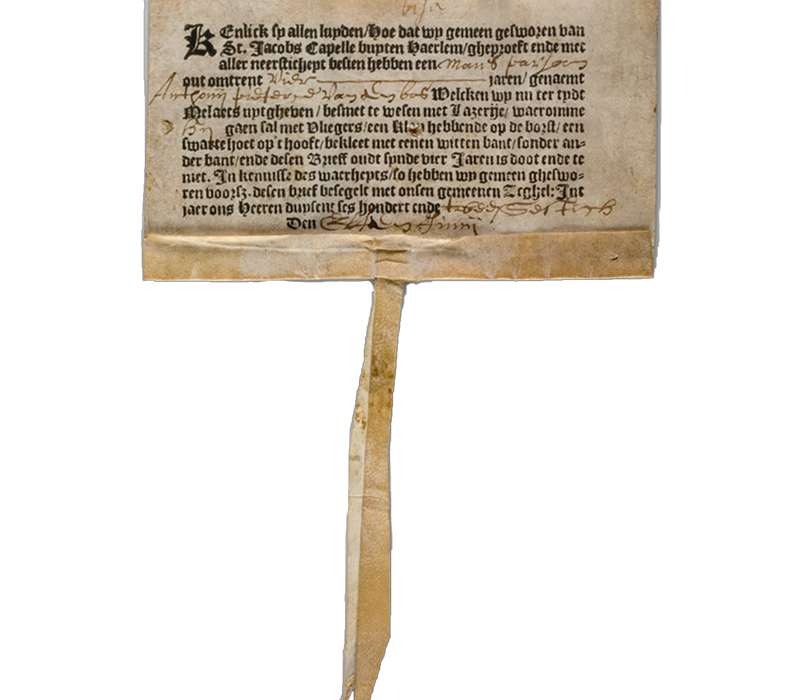 visa
KEnlick sy allen luyden/Hoe dat wy gemeen gesworen van
St. Jacobs Capelle buyten Haerlem/gheproeft ende met
aller neerstichept besien hebben een mans parsoon
out omtrent Vier jaren/genaemt
Anthonij pietersz van den bos Welcken wy nu ter tydt
Melaets uytgheven/besmet te wesen met Lazerije/waeromme
Hij gaen sal met Vliegers/een Klap hebbende op de borst/een
swarte hoet op't hooft/bekleet met eenen witten bant/sonder an-
der bant/ende desen Brieff oudt synde vier Jaren is doot ende te
niet. In kennisse des waerheyts/so hebben wy gemeen gheswo-
ren voorsz. desen brief besegelt met onsen gemeenen Zeghel: Int
jaer ons Heeren duysent ses hondert ende twee
Den Junij